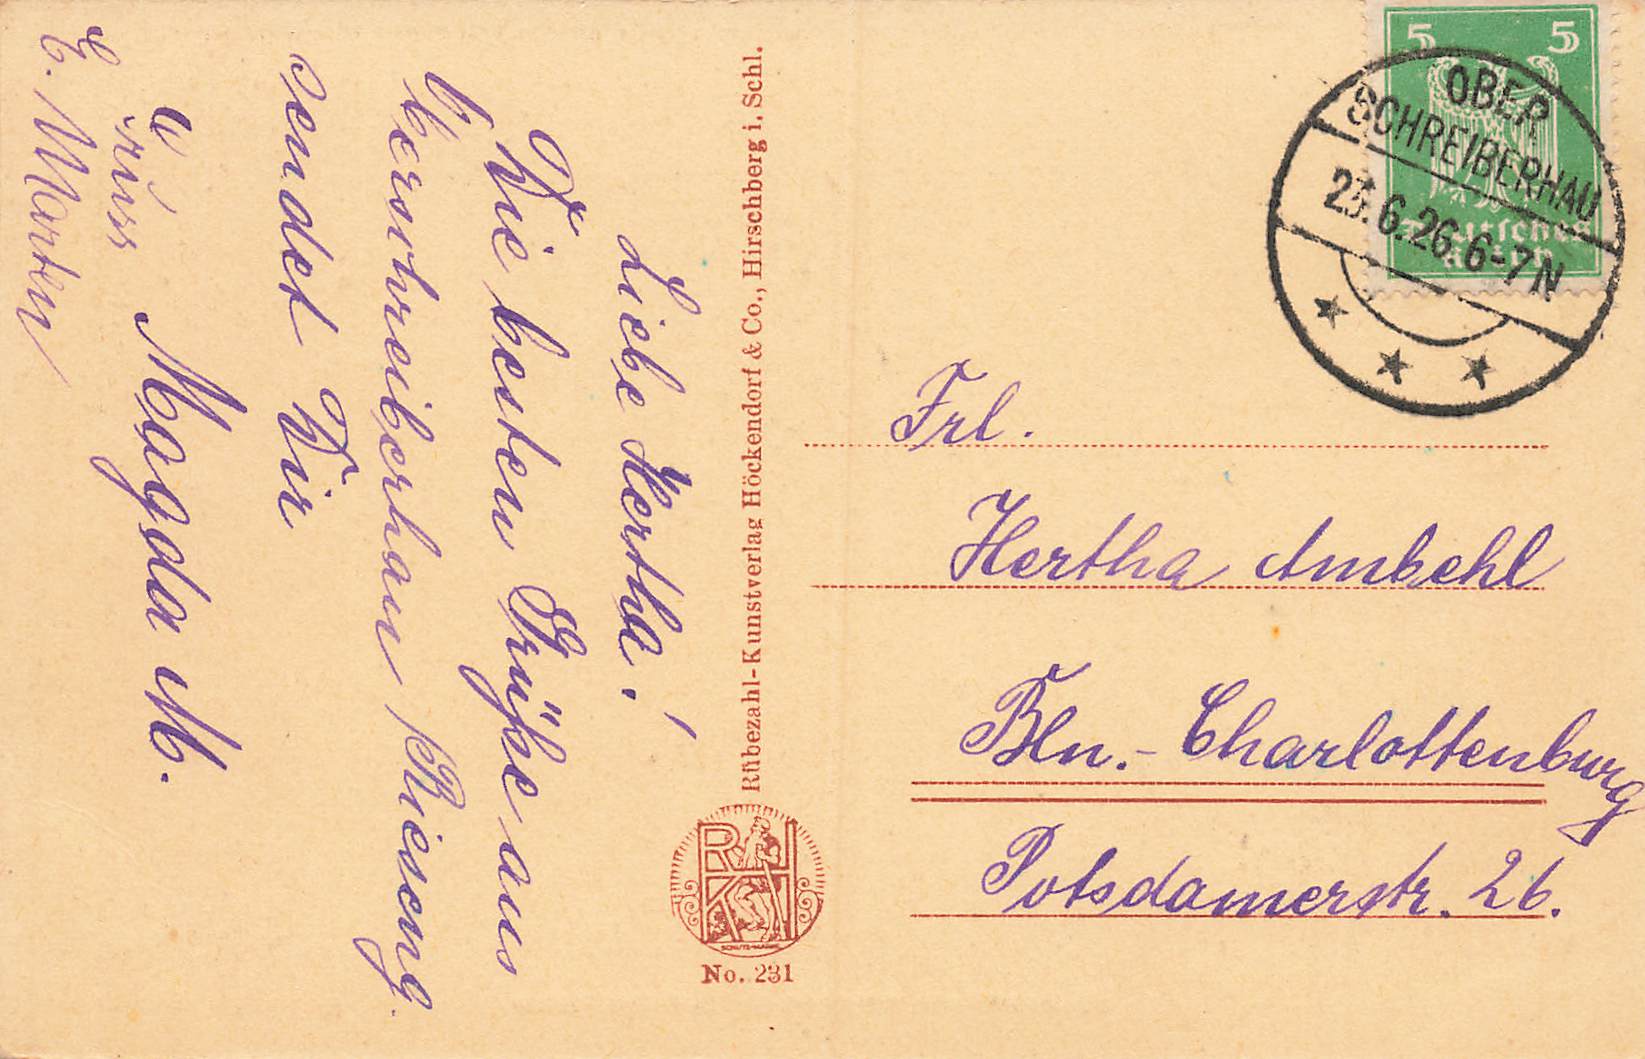 Liebe Hertha!
Die besten Grüße aus
Oberschreiberhau / Riesengb.
sendet Dir
Magda M.
Gruss
E. Marten
Rübezahl-Kunstverlag Höckendorf & Co., Hirschberg i. Schl.
RKV
SCHUTZ-MARKE
No. 231
5 5
Deutsches
Reich
OBER
SCHREIBERHAU
23.6.26.6-7N
Frl.
Hertha Ambehl
Bln.-Charlottenburg
Potsdamerstr. 26.